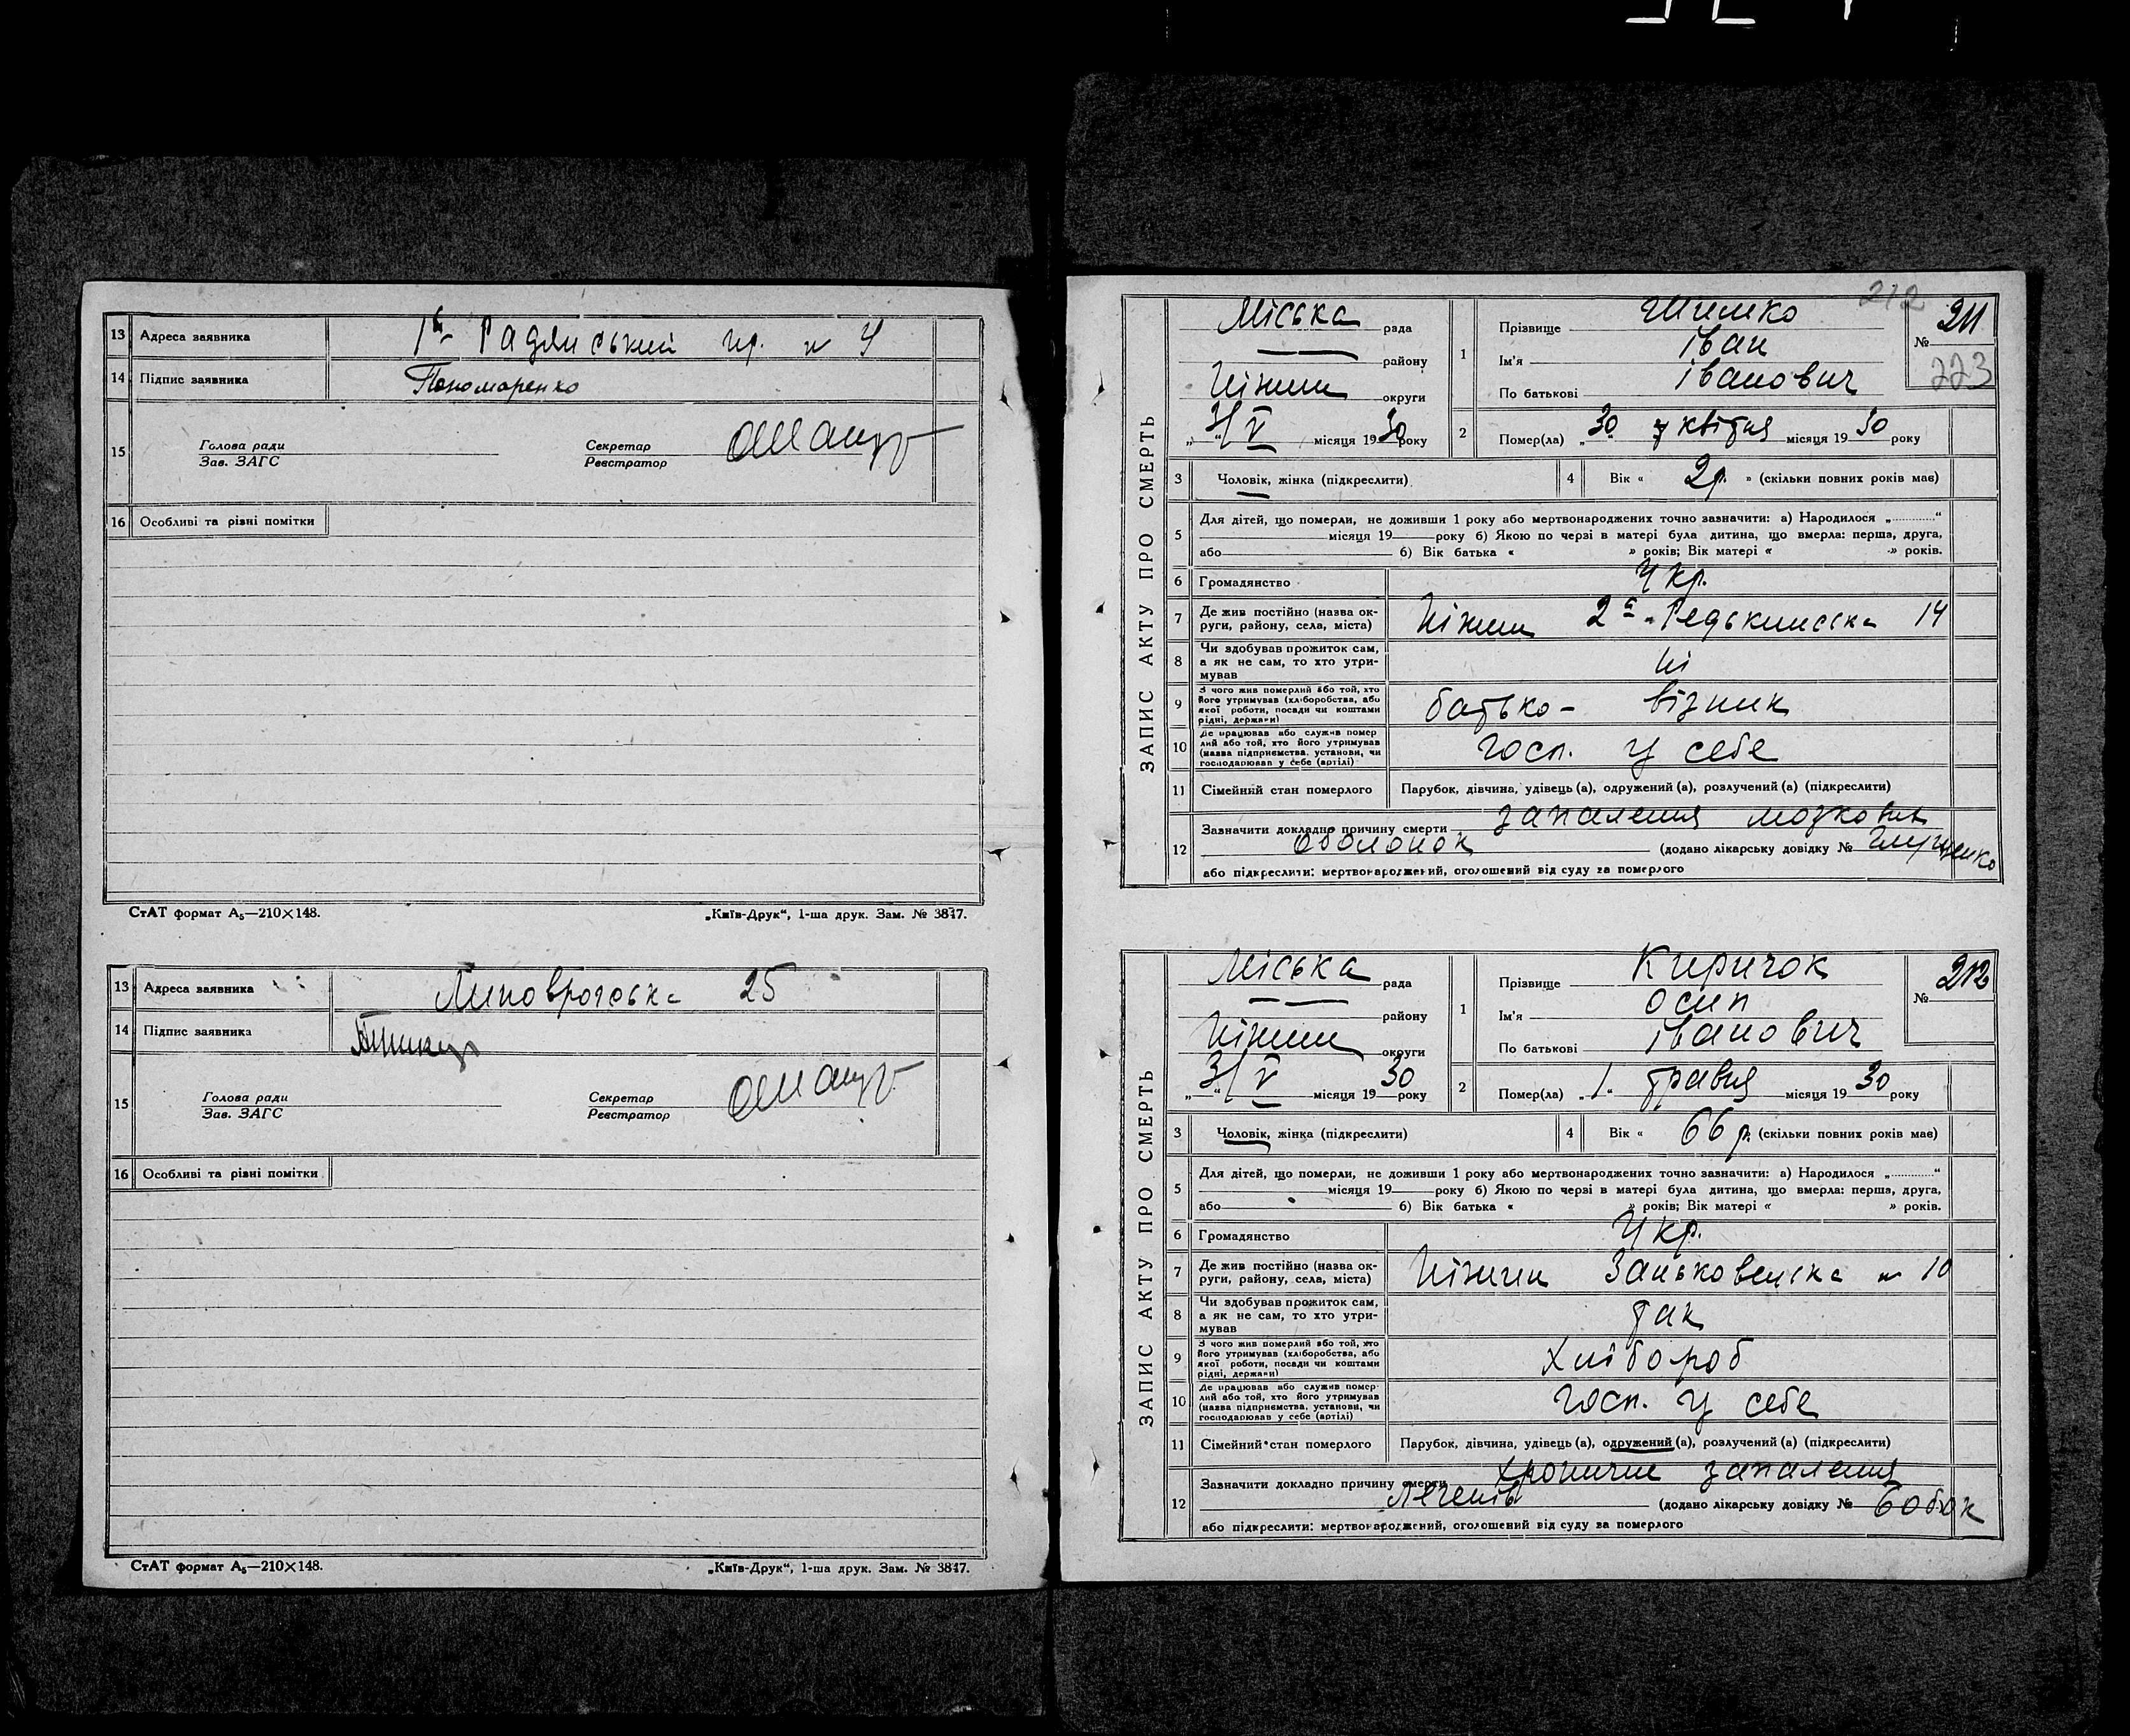 13 Адреса заявника 1й Радянський пр. № 4
14 Підпис заявника Пономаренко
15 Голова ради Секретар
Зав. ЗАГС Реєстратор
16 Особливі та різні помітки
СтАТ формат А₅—210×148. „Київ-Друк“, 1-ша друк. Зам. № 3847.
13 Адреса заявника 25
14 Підпис заявника
15 Голова ради Секретар
Зав. ЗАГС Реєстратор
16 Особливі та різні помітки
СтАТ формат А₅—210×148. „Київ-Друк“, 1-ша друк. Зам. № 3847.
212
ЗАПИС АКТУ ПРО СМЕРТЬ
Міська рада
району
Ніжин округи
„3/“ V місяця 1930 року
1 Прізвище Шимко
Ім'я Іван
По батькові Іванович
№ 211
223
2 Помер(ла) „30 квітня місяця 1930 року
3 Чоловік, жінка (підкреслити)
4 Вік « 2р. » (скільки повних років має)
5 Для дітей, що померли, не доживши 1 року або мертвонароджених точно зазначити: а) Народилося „............“
місяця 19 року б) Якою по черзі в матері була дитина, що вмерла: перша, друга,
або б) Вік батька « » років; Вік матері « » років.
6 Громадянство Укр.
7 Де жив постійно (назва ок-
руги, району, села, міста) Ніжин 2а 14
8 Чи здобував прожиток сам,
а як не сам, то хто утри-
мував ні
9 З чого жив померлий або той, хто
його утримував (хліборобства, або
якої роботи, посади чи коштами
рідні, держави) батько – візник
10 Де працював або служив помер
лий або той, хто його утримував
(назва підприємства, установи, чи
господарював у себе (артілі) госп. у себе
11 Сімейний стан померлого Парубок, дівчина, удівець (а), одружений (а), розлучений (а) (підкреслити)
12 Зазначити докладно причину смерти запалення мозкових
оболонок (додано лікарську довідку №
або підкреслити: мертвонароджений, оголошений від суду за померлого
ЗАПИС АКТУ ПРО СМЕРТЬ
Міська рада
району
Ніжин округи
„3/“ V місяця 1930 року
1 Прізвище Киричок
Ім'я Осип
По батькові Іванович
№ 212
2 Помер(ла) „1“ травня місяця 1930 року
3 Чоловік, жінка (підкреслити)
4 Вік « 66 р. (скільки повних років має)
5 Для дітей, що померли, не доживши 1 року або мертвонароджених точно зазначити: а) Народилося „............“
місяця 19 року б) Якою по черзі в матері була дитина, що вмерла: перша, друга,
або б) Вік батька « » років; Вік матері « » років.
6 Громадянство Укр.
7 Де жив постійно (назва ок-
руги, району, села, міста) Ніжин № 10
8 Чи здобував прожиток сам,
а як не сам, то хто утри-
мував так
9 З чого жив померлий або той, хто
його утримував (хліборобства, або
якої роботи, посади чи коштами
рідні, держави) хлібороб
10 Де працював або служив помер-
лий або той, хто його утримував
(назва підприємства, установи, чи
господарював у себе (артілі) госп. у себе
11 Сімейний стан померлого Парубок, дівчина, удівець (а), одружений (а), розлучений (а) (підкреслити)
12 Зазначити докладно причину смерти хронічне запалення
легенів (додано лікарську довідку № Бобок
або підкреслити: мертвонароджений, оголошений від суду за померлого